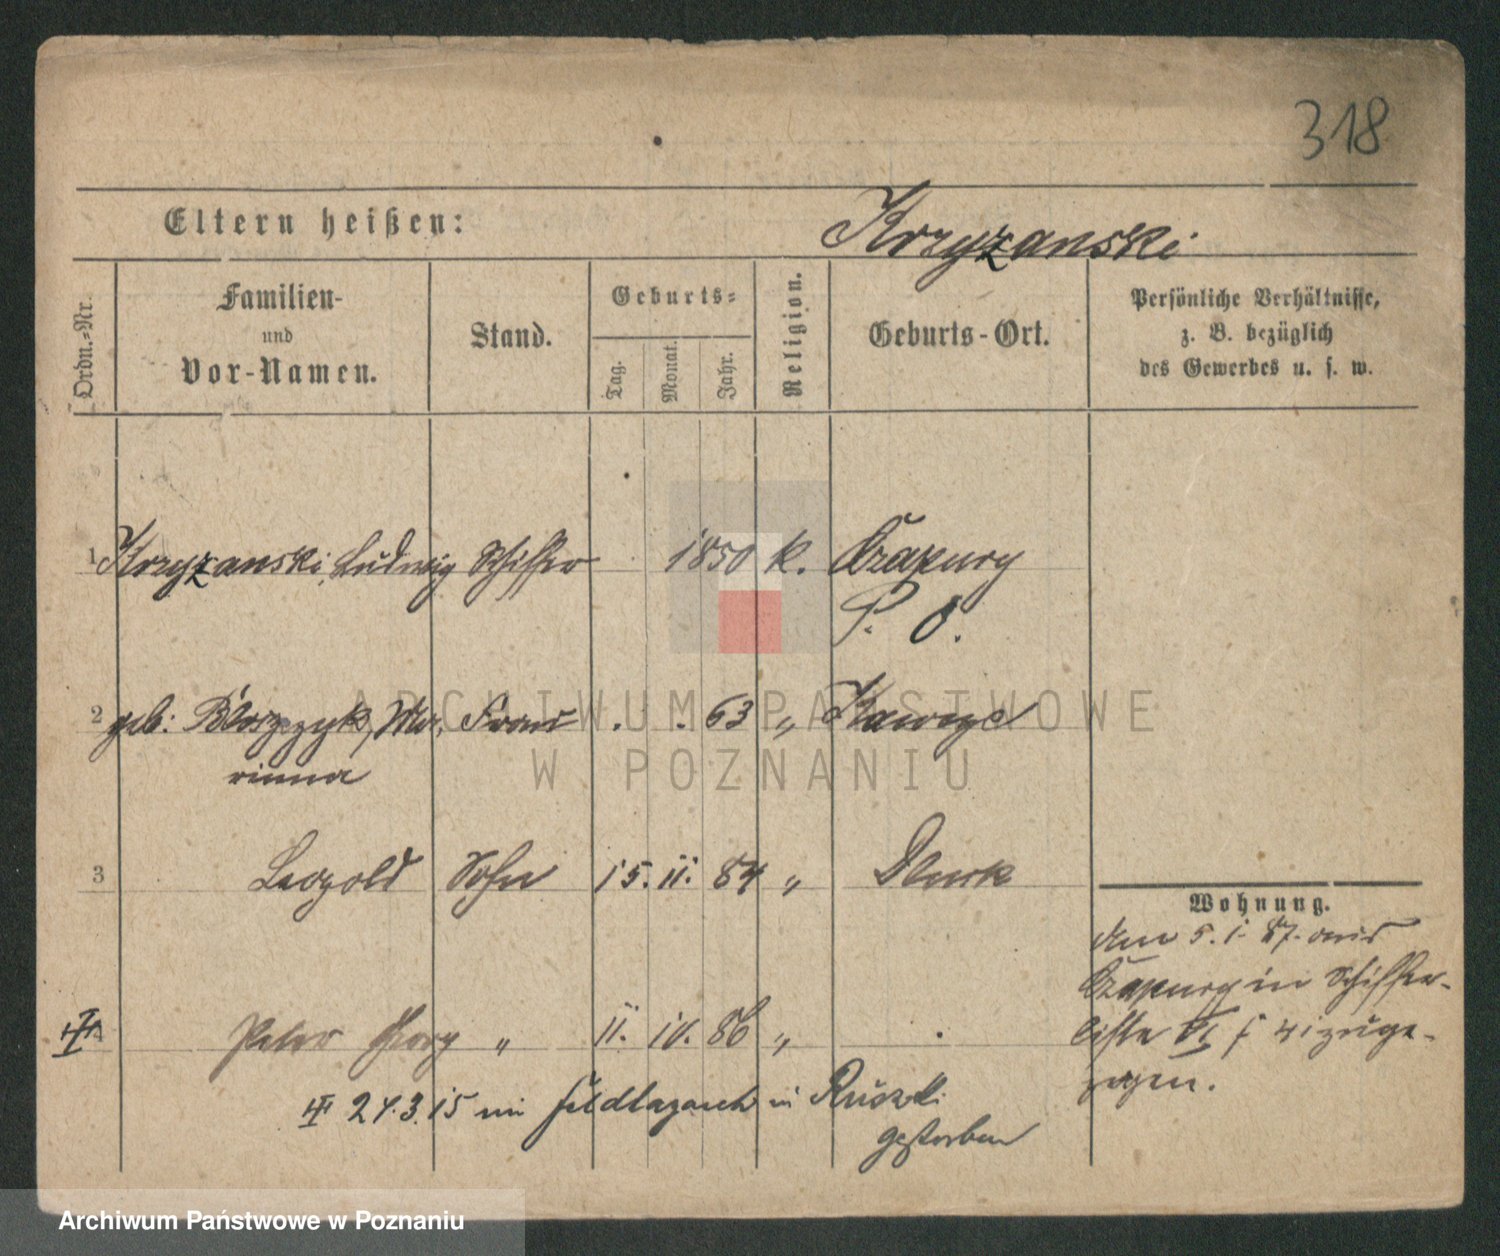 318
Eltern heißen:
Krzyzanski
Ordn.-Nr.
Familien-
und
Vor-Namen.
Stand.
Geburts-
Tag.
Monat.
Jahr.
Religion.
Geburts-Ort.
Persönliche Verhältnisse,
z. B. bezüglich
des Gewerbes u. s. w.
1 Krzyzanski, Ludwig Schiffer 1850 k. Czapury
P. O.
2 geb: Błoszzyk, Ma- Frau . . 63 "
rianna
3 Leopold Sohn 15. 11. 84 "
4 Peter Georg " 11. 10. 86 " .
24.3.15 im Feldlazareth in
gestorben
Wohnung.
Am 5. 1. 87. aus
Czapury in Schiffer-
liste VI zuge-
zogen.
ARCHIWUM PAŃSTWOWE
W POZNANIU
Archiwum Państwowe w Poznaniu